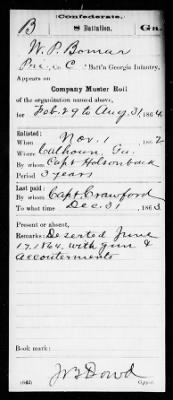 (Confederate.)
B 8 Battalion. Ga.
W. P. Bomar
Pvt., Co. C, 8 Batt'n Georgia Infantry,
Appears on
Company Muster Roll
of the organization named above,
for Feb. 29 to Aug. 31, 1864
Enlisted:
When Nov. 1 1862
Where Calhoun, Ga.
By whom Capt. Holsonback
Period 3 years
Last paid:
By whom Capt. Crawford
To what time Dec. 31, 1863
Present or absent,
Remarks: Deserted June
17, 1864, with gun &
accouterments
Book mark:
(642) Copyist.